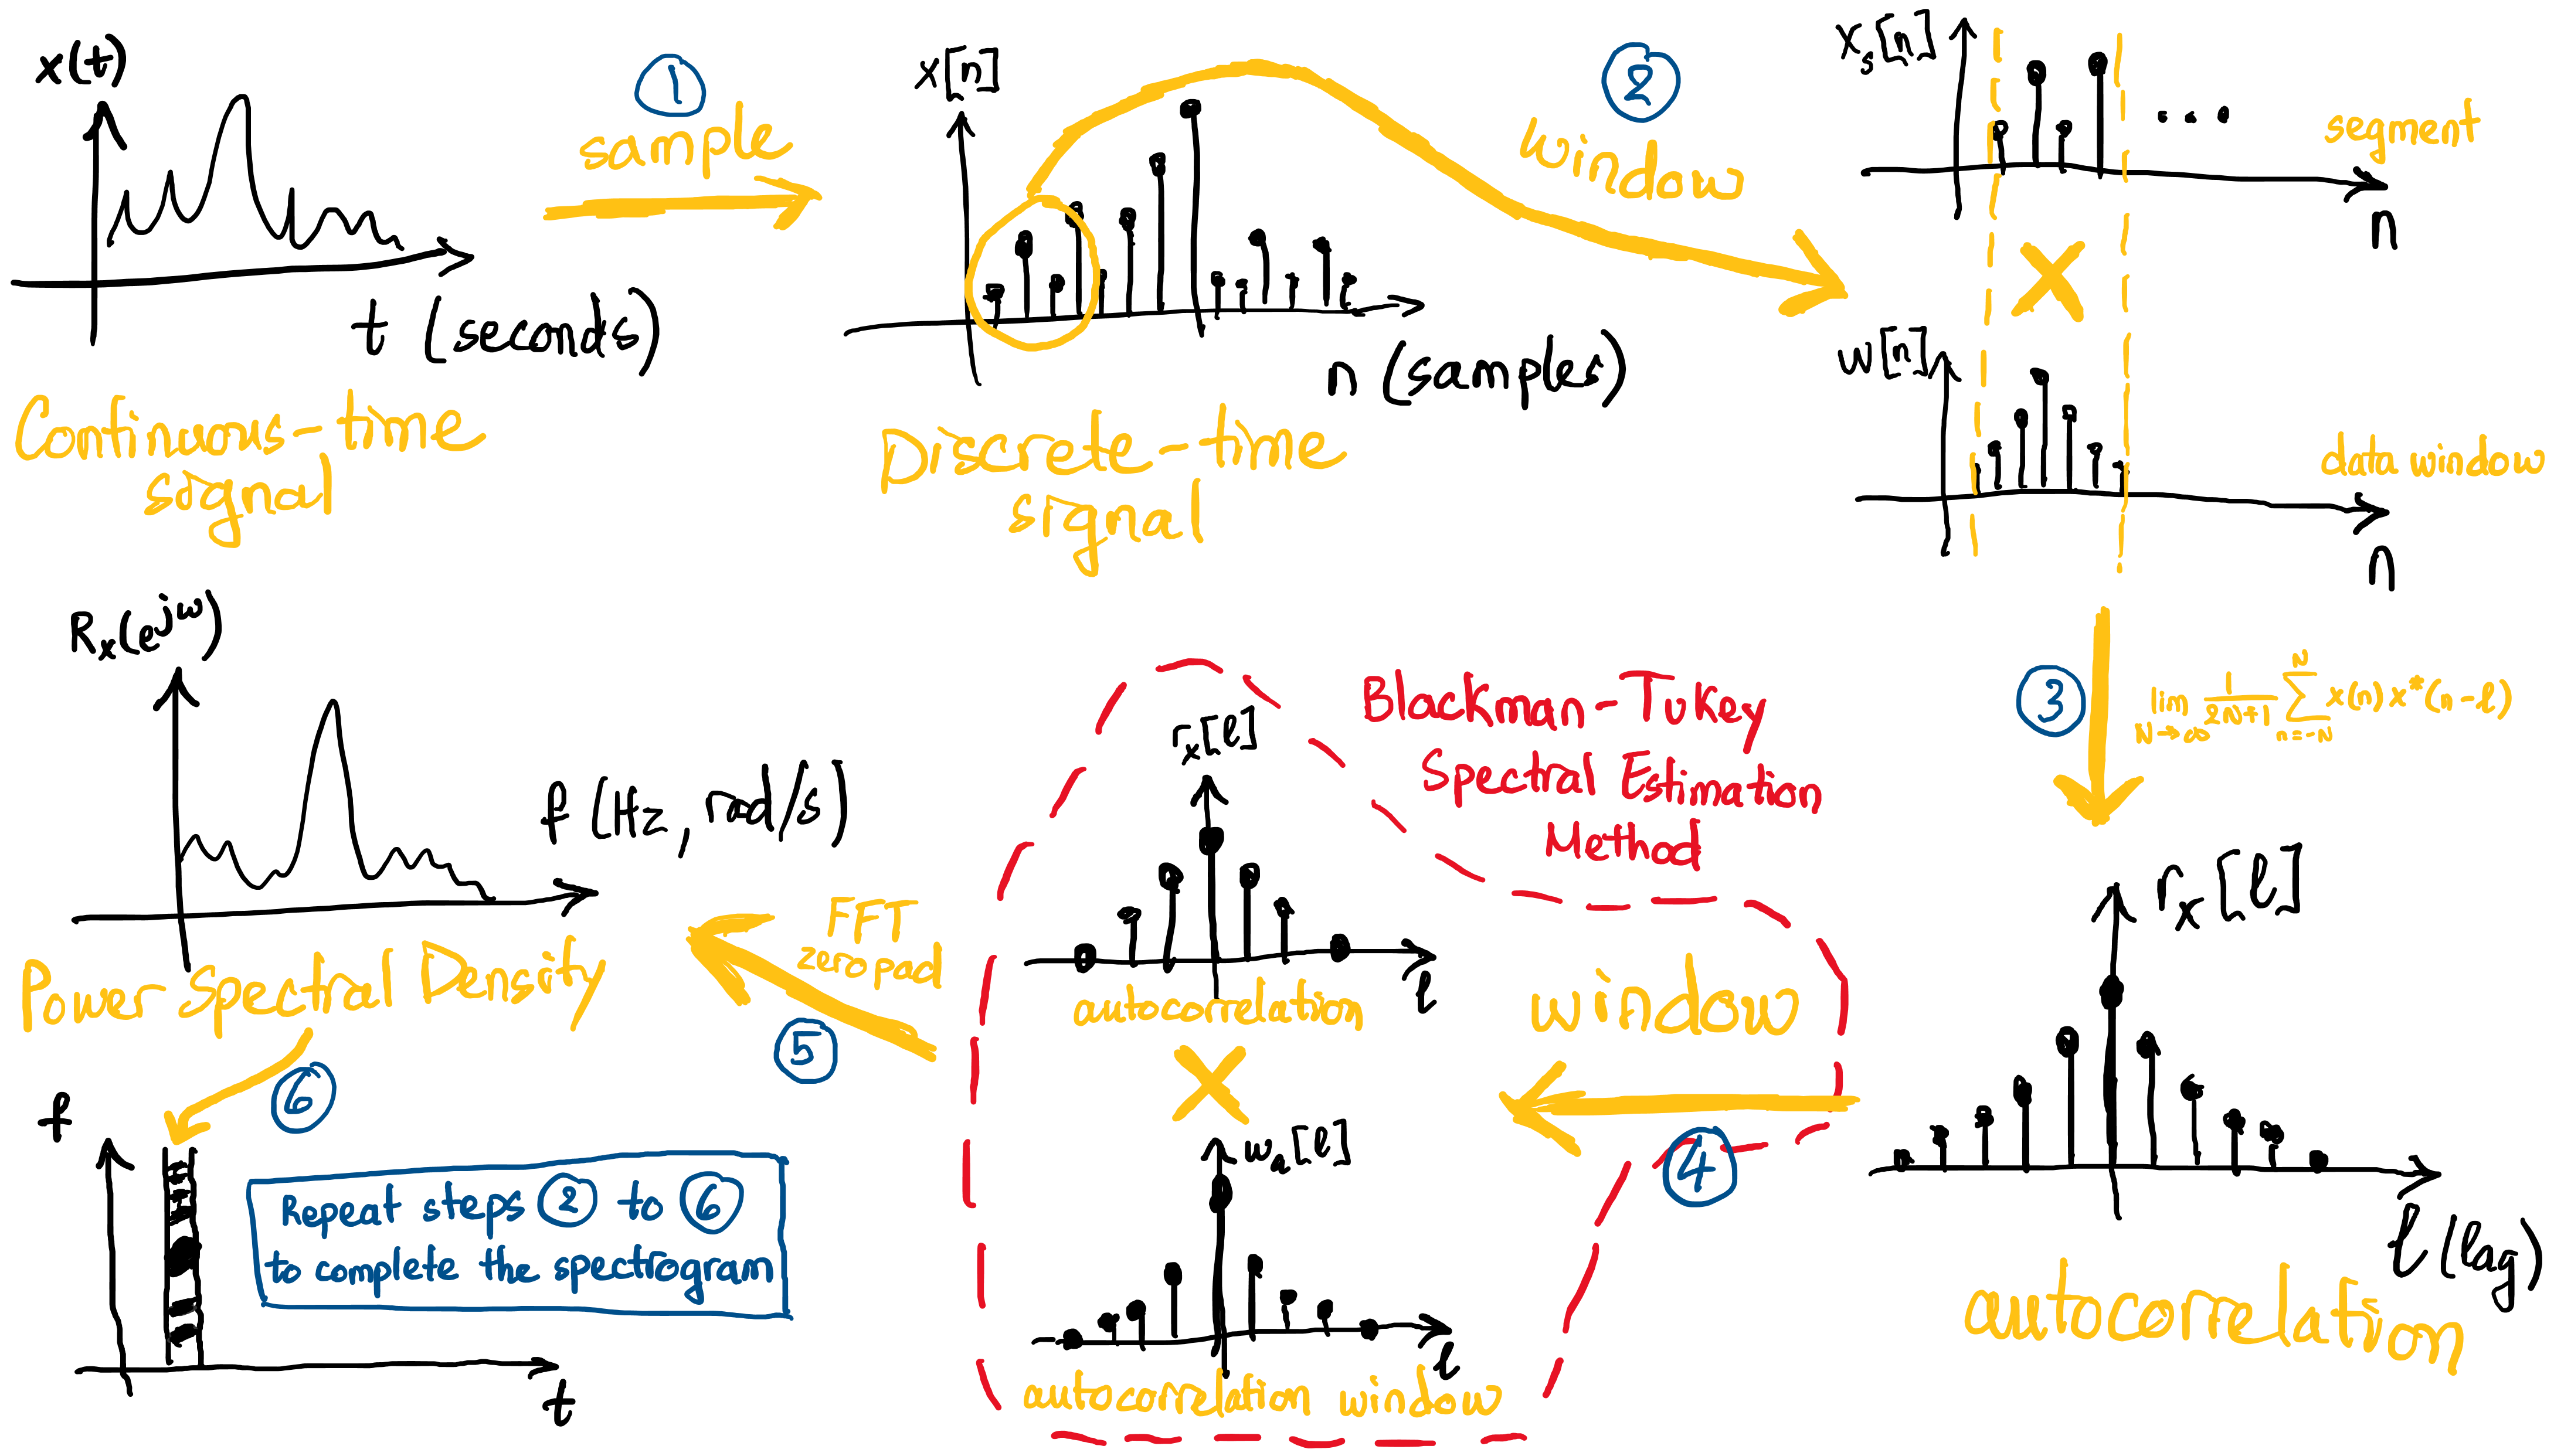 x(t)
t (seconds)
Continuous-time
signal
1
sample
x[n]
n (samples)
Discrete-time
signal
2
window
x_s[n]
segment
n
w[n]
data window
n
3
lim N→∞ 1/(2N+1) Σ_{n=-N}^{N} x(n) x*(n-ℓ)
r_x[ℓ]
ℓ (lag)
autocorrelation
window
4
Blackman-Tukey
Spectral Estimation
Method
r_x[ℓ]
ℓ
autocorrelation
w_a[ℓ]
ℓ
autocorrelation window
FFT
zero pad
5
R_x(e^{jω})
f (Hz, rad/s)
Power Spectral Density
6
f
t
Repeat steps 2 to 6
to complete the spectrogram